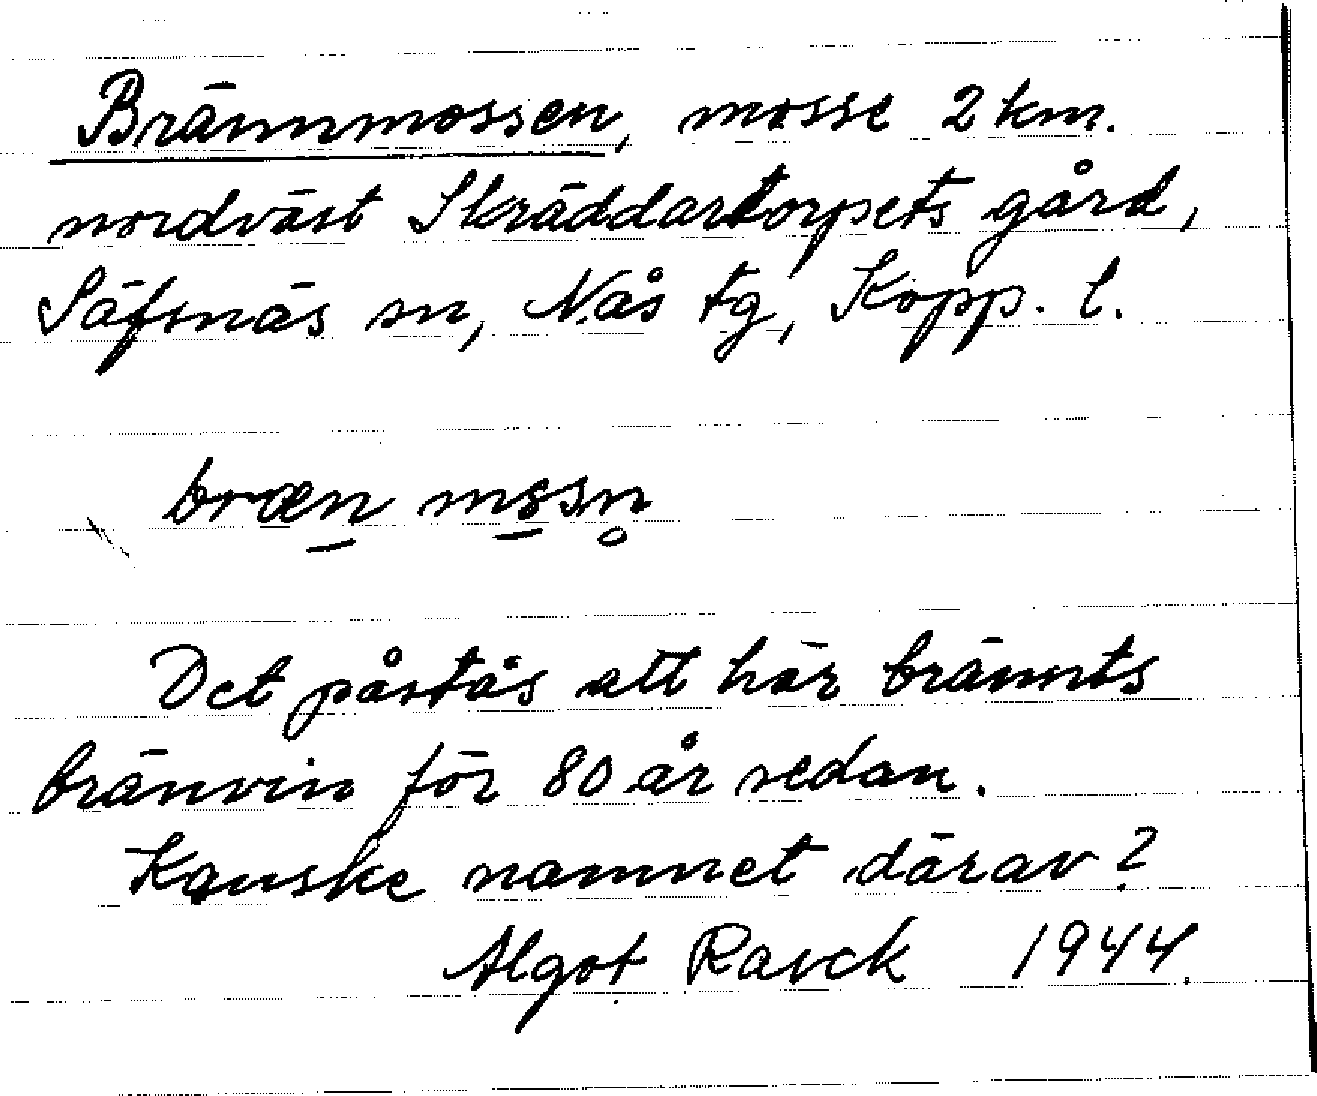 Brännmossen, mosse 2 km.
nordväst Skräddartorpets gård,
Säfsnäs sn, Nås tg, Kopp. l.
bræn mssn
Det påstås att här brännts
bränvin för 80 år sedan.
Kanske namnet därav?
Algot Ravck 1944.